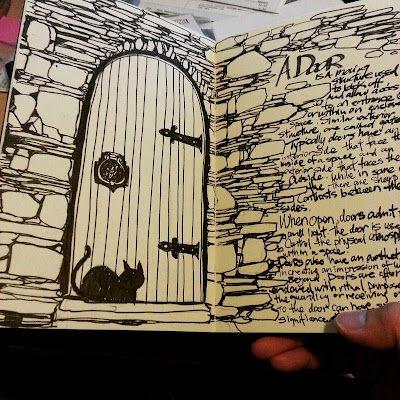 A Door
is a moving
structure used
to block off
and allow access
to an entrance
or within an enclosed
space. Similar exterior
structures are called gates.
Typically doors have an
interior side that faces the
inside of a space and an
exterior side that faces the
Outside. While in some
the there are sharp
Contrasts between the
sides.
When open, doors admit
and light. The door is used
to control the physical atmosph
within a space
Doors also have an aesthet
in creating an impression of
beyond. Doors are often
endowed with ritual purposes
the guarding or receiving of
to the door can have
significance